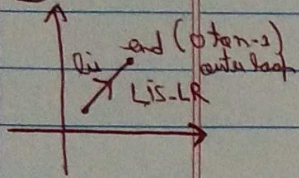 lis end (0 to n-1)
outer loop
LIS-LR